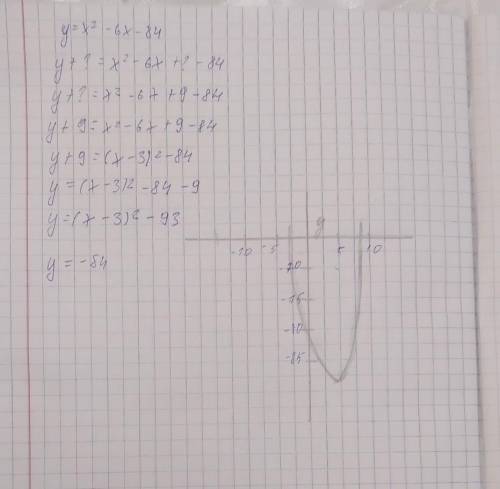 y = x² - 6x - 84
y + ? = x² - 6x + ? - 84
y + ? = x² - 6x + 9 - 84
y + 9 = x² - 6x + 9 - 84
y + 9 = (x - 3)² - 84
y = (x - 3)² - 84 - 9
y = (x - 3)² - 93
y = -84
y
-10 -5 5 10
-15
-85